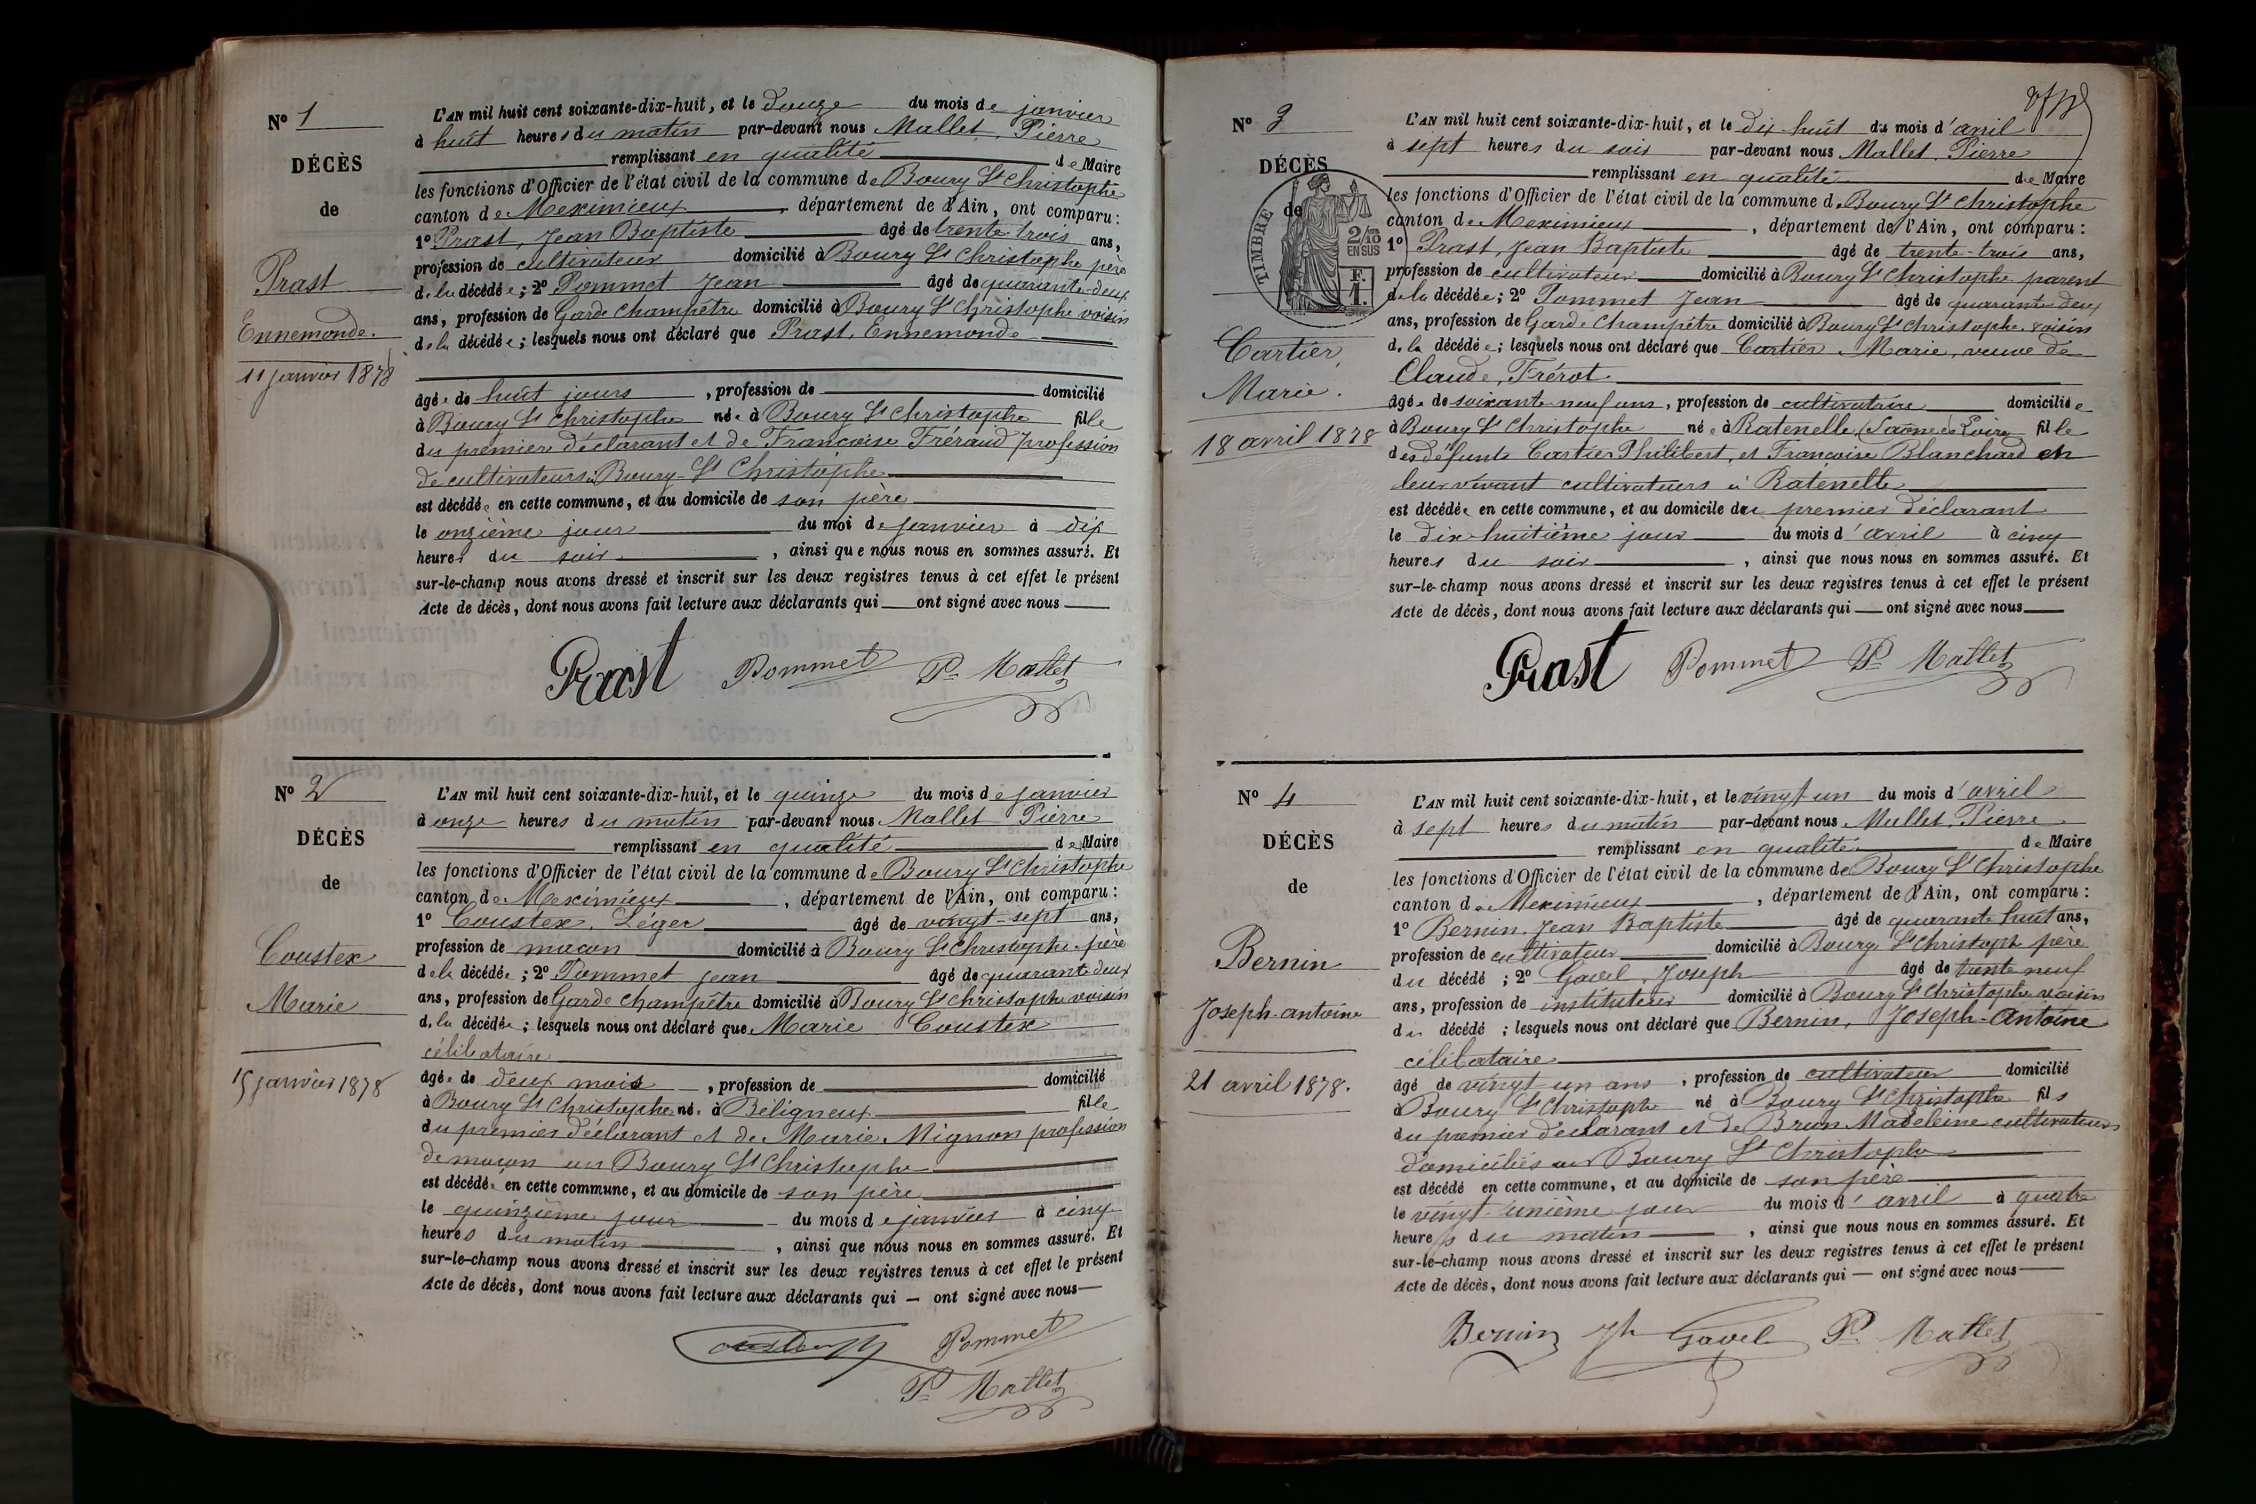 N° 1
DÉCÈS
de
Prast
Ennemonde.
11 janvier 1878
L'AN mil huit cent soixante-dix-huit, et le douze du mois de janvier
à huit heures du matin par-devant nous Mallet, Pierre
remplissant en qualité de Maire
les fonctions d'Officier de l'état civil de la commune de Bourg St Christophe
canton de Meximieux, département de l'Ain, ont comparu:
1° Prast, Jean Baptiste âgé de trente trois ans,
profession de cultivateur domicilié à Bourg St Christophe père
de la décédée; 2° Pommet Jean âgé de quarante-deux
ans, profession de Garde champêtre domicilié à Bourg St Christophe voisin
de la décédée; lesquels nous ont déclaré que Prast, Ennemonde
âgée de huit jours, profession de domicilié
à Bourg St Christophe née à Bourg St Christophe fille
du premier déclarant et de Françoise Fréraud profession
de cultivateurs à Bourg-St Christophe
est décédée en cette commune, et au domicile de son père
le onzième jour du moi de janvier à dix
heures du soir, ainsi que nous nous en sommes assuré. Et
sur-le-champ nous avons dressé et inscrit sur les deux registres tenus à cet effet le présent
Acte de décès, dont nous avons fait lecture aux déclarants qui ont signé avec nous
Prast Pommet P. Mallet
N° 2
DÉCÈS
de
Coustex
Marie
15 janvier 1878
L'AN mil huit cent soixante-dix-huit, et le quinze du mois de janvier
à onze heures du matin par-devant nous Mallet Pierre
remplissant en qualité de Maire
les fonctions d'Officier de l'état civil de la commune de Bourg St Christophe
canton de Meximieux, département de l'Ain, ont comparu:
1° Coustex, Léger âgé de vingt-sept ans,
profession de maçon domicilié à Bourg St Christophe père
de la décédée; 2° Pommet Jean âgé de quarante deux
ans, profession de Garde champêtre domicilié à Bourg St Christophe voisin
de la décédée; lesquels nous ont déclaré que Marie Coustex
célibataire
âgée de deux mois, profession de domicilié
à Bourg St Christophe née à Béligneux fille
du premier déclarant et de Marie Mignon profession
de maçon au Bourg St Christophe
est décédée en cette commune, et au domicile de son père
le quinzième jour du mois de janvier à cinq
heures du matin, ainsi que nous nous en sommes assuré. Et
sur-le-champ nous avons dressé et inscrit sur les deux registres tenus à cet effet le présent
Acte de décès, dont nous avons fait lecture aux déclarants qui ont signé avec nous
Pommet
P. Mallet
N° 3
DÉCÈS
de
TIMBRE
2/10 EN SUS
F. 1.
Cartier,
Marie.
18 avril 1878
L'AN mil huit cent soixante-dix-huit, et le dix huit du mois d'avril
à sept heures du soir par-devant nous Mallet, Pierre
remplissant en qualité de Maire
les fonctions d'Officier de l'état civil de la commune de Bourg St Christophe
canton de Meximieux, département de l'Ain, ont comparu:
1° Prast, Jean Baptiste âgé de trente-trois ans,
profession de cultivateur domicilié à Bourg St Christophe parent
de la décédée; 2° Pommet Jean âgé de quarante deux
ans, profession de Garde Champêtre domicilié à Bourg St Christophe voisin
de la décédée; lesquels nous ont déclaré que Cartier Marie, veuve de
Claude, Frérot
âgée de soixante neuf ans, profession de cultivatrice domiciliée
à Bourg St Christophe née à Ratenelle (Saône et Loire) fille
des défunts Cartier Philibert, et Françoise Blanchard en
leur vivant cultivateurs à Ratenelle
est décédée en cette commune, et au domicile du premier déclarant
le dix huitième jour du mois d'avril à cinq
heures du soir, ainsi que nous nous en sommes assuré. Et
sur-le-champ nous avons dressé et inscrit sur les deux registres tenus à cet effet le présent
Acte de décès, dont nous avons fait lecture aux déclarants qui ont signé avec nous
Prast Pommet P. Mallet
N° 4
DÉCÈS
de
Bernin
Joseph-antoine
21 avril 1878.
L'AN mil huit cent soixante-dix-huit, et le vingt un du mois d'avril
à sept heures du matin par-devant nous Mallet, Pierre
remplissant en qualité de Maire
les fonctions d'Officier de l'état civil de la commune de Bourg St Christophe
canton de Meximieux, département de l'Ain, ont comparu:
1° Bernin, Jean Baptiste âgé de quarante huit ans,
profession de cultivateur domicilié à Bourg St Christoph père
du décédé; 2° Gavel, Joseph âgé de trente neuf
ans, profession de instituteur domicilié à Bourg St Christophe voisin
du décédé; lesquels nous ont déclaré que Bernin, Joseph-Antoine
célibataire
âgé de vingt un ans, profession de cultivateur domicilié
à Bourg St Christoph né à Bourg St Christophe fils
du premier déclarant et de Brun Madeleine cultivateurs
domiciliés au Bourg St Christophe
est décédé en cette commune, et au domicile de son père
le vingt-unième jour du mois d'avril à quatre
heures du matin, ainsi que nous nous en sommes assuré. Et
sur-le-champ nous avons dressé et inscrit sur les deux registres tenus à cet effet le présent
Acte de décès, dont nous avons fait lecture aux déclarants qui ont signé avec nous
Bernin Jh Gavel P. Mallet